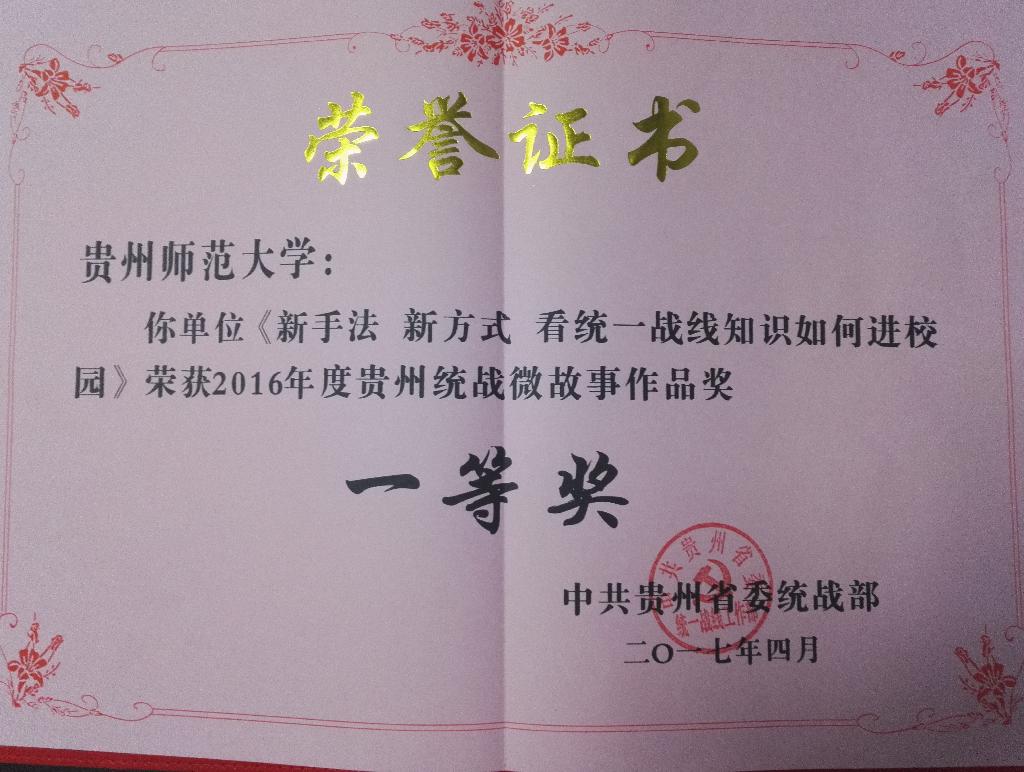 荣誉证书
贵州师范大学：
你单位《新手法 新方式 看统一战线知识如何进校
园》荣获2016年度贵州统战微故事作品奖
一等奖
中共贵州省委统战部
二〇一七年四月
中共贵州省委
统一战线工作部